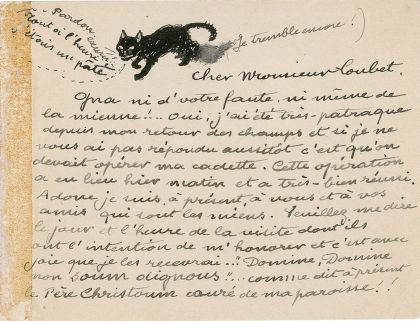 Pardon
Tout à l'heure
j'étais un pâté
(Je tremble encore!)
Cher Monsieur Coubet.
Gna ni d'votre faute, ni même de
la mienne!... Oui, j'ai été très-patraque
depuis mon retour des champs et si je ne
vous ai pas répondu aussitôt c'est qu'on
devait opérer ma cadette. Cette opération
a eu lieu hier matin et a très-bien réussi.
Adonc je suis, à présent, à vous et à vos
amis qui sont les miens. Veuillez me dire
le jour et l'heure de la visite dont ils
ont l'intention de m'honorer et c'est avec
joie que je les recevrai... "Domine, Domine
non Soum dignous"... comme dit à présent
le Père Christoum curé de ma paroisse!!